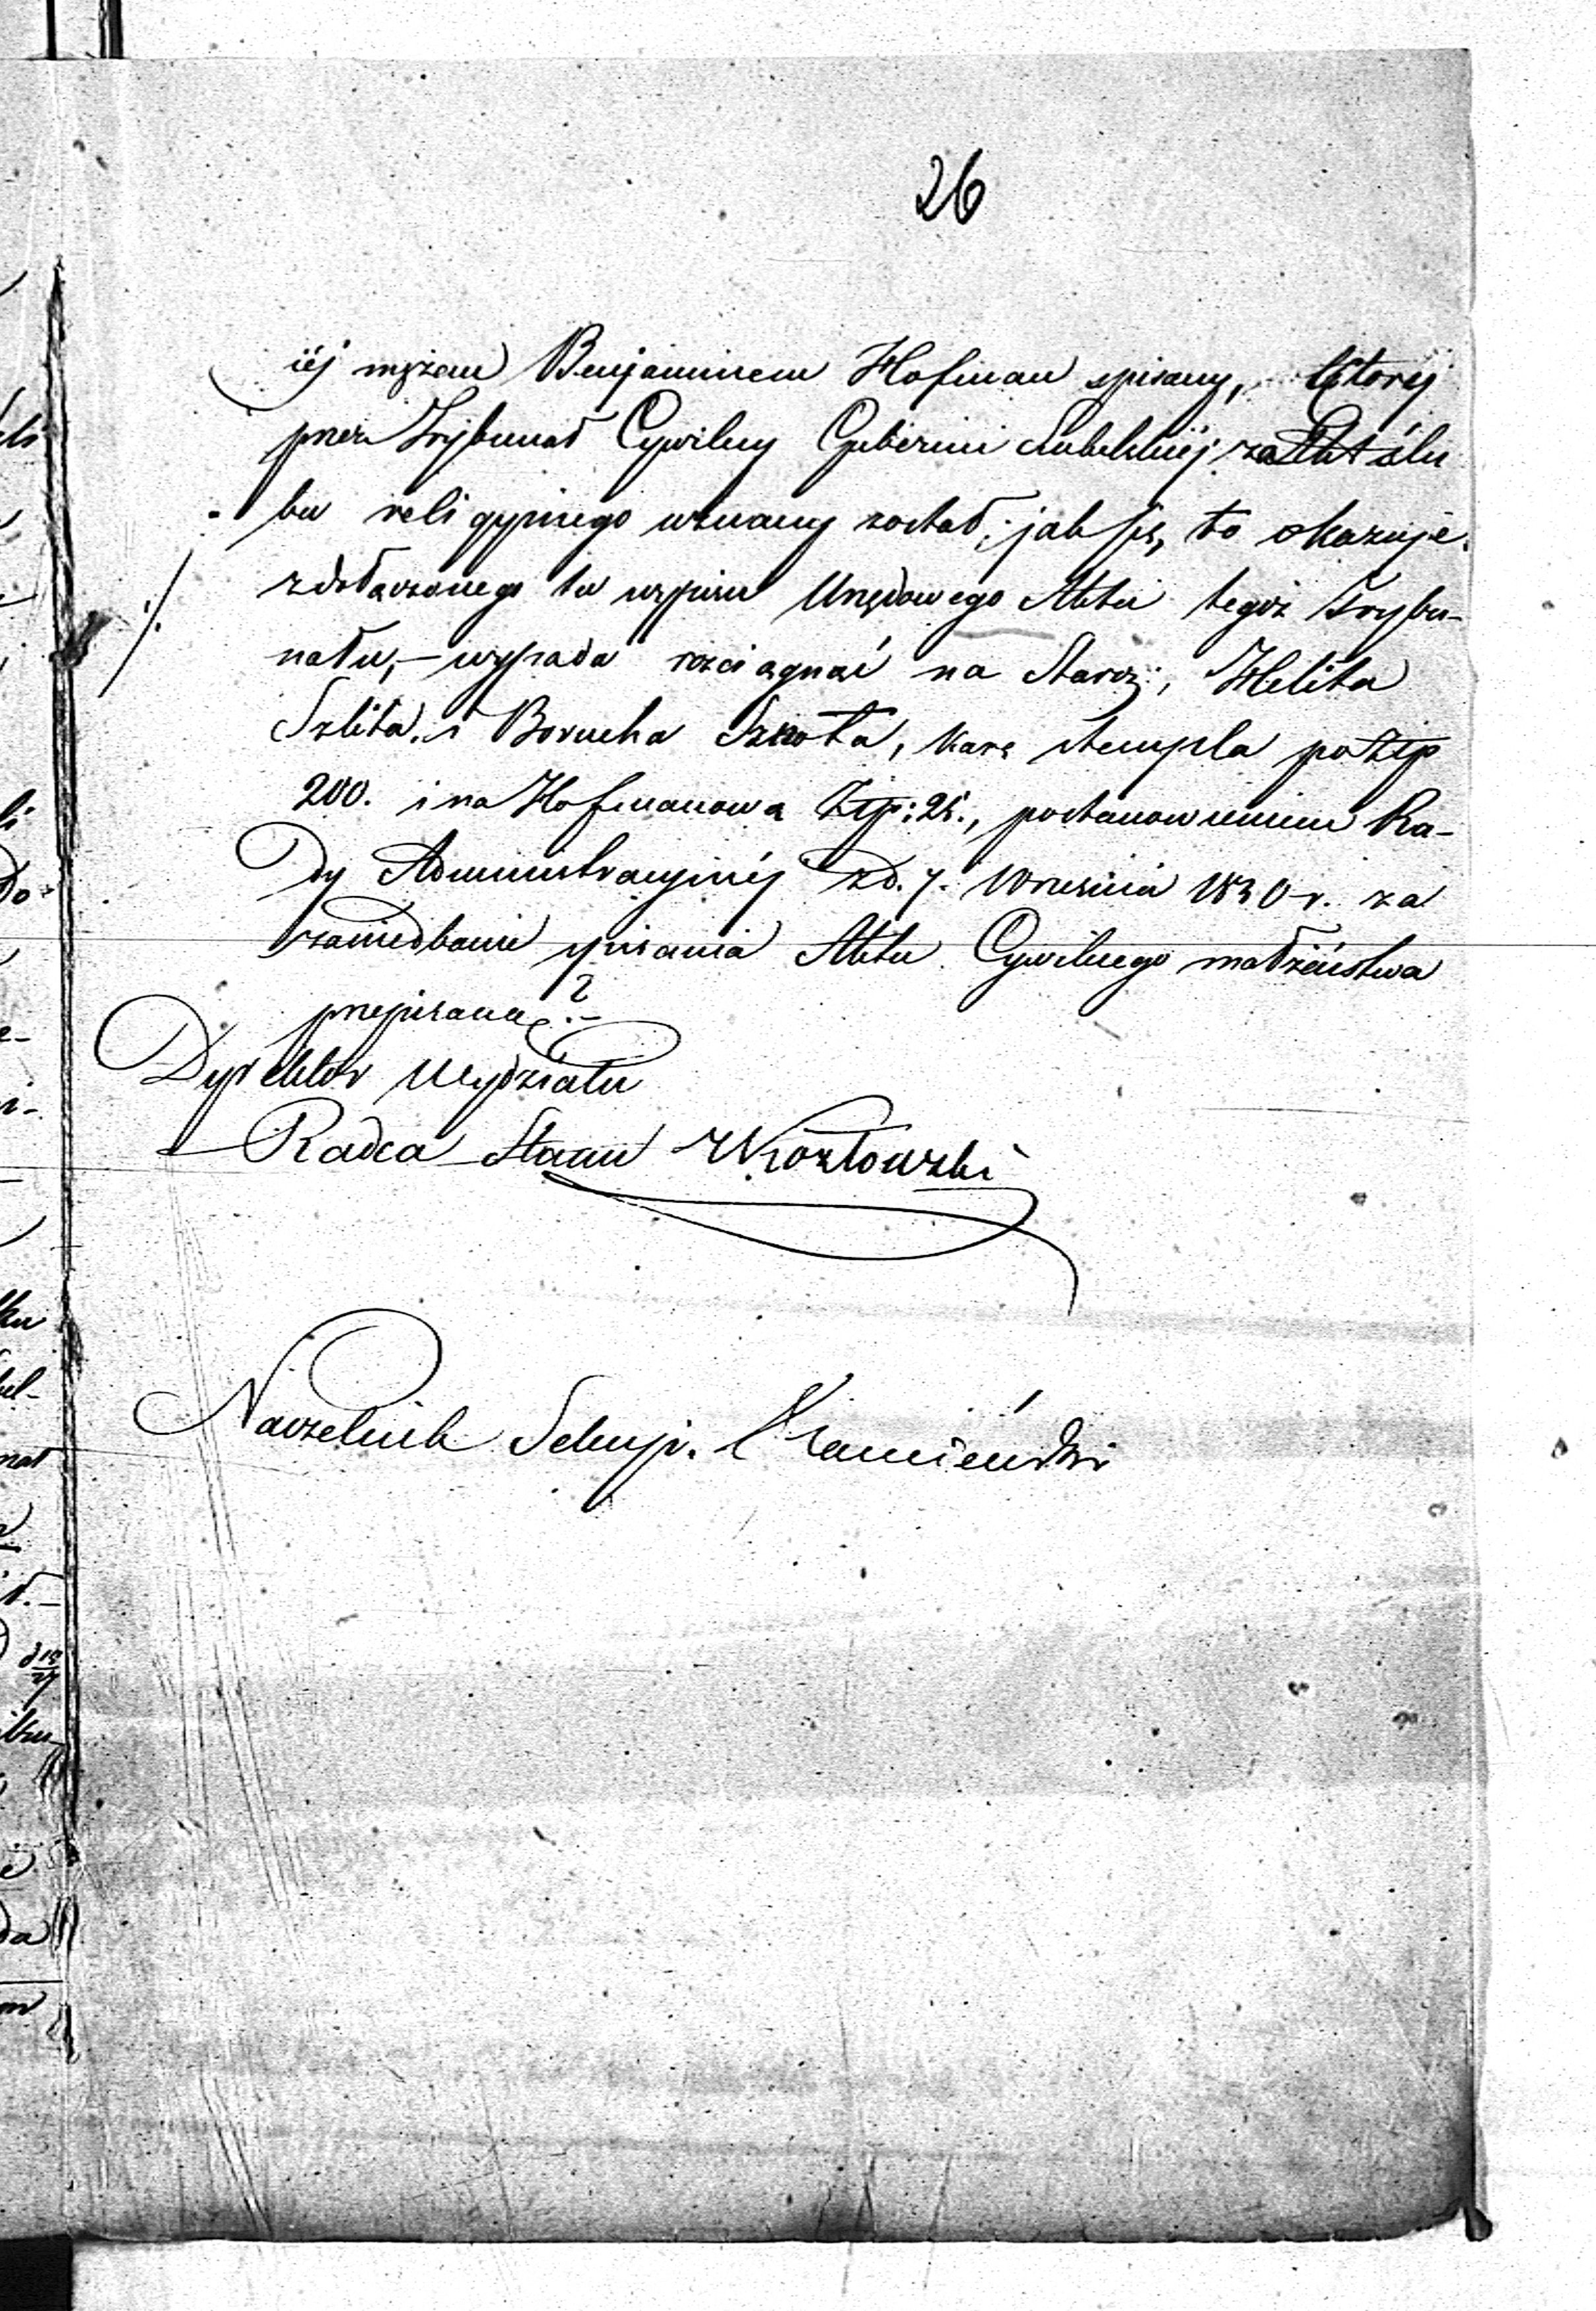 26
iéj mężem Benjaminem Hofman spisany, który
przez Trybunał Cywilny Gubernii Lubelskiéj za Akt ślu
bu religyjnego uznany został, jak się to okazuje
z dołączonego tu wypisu Urzędowego Aktu tegoż Trybu-
nału, – wypada rozciągnąć na Staroz:, Helika
Szlita, i Borucha Sznota, karę stempla po Złp
200. i na Hofmanowa Złp: 25., postanowieniem Ra-
dy Administracyjnéj z d. 7. Września 1830 r. za
zaniedbanie spisania Aktu Cywilnego małżeństwa
przepisaną ?–
Dyrektor Wydziału
Radca Stanu Kozłowski
Naczelnik Sekcyi. Kamieński